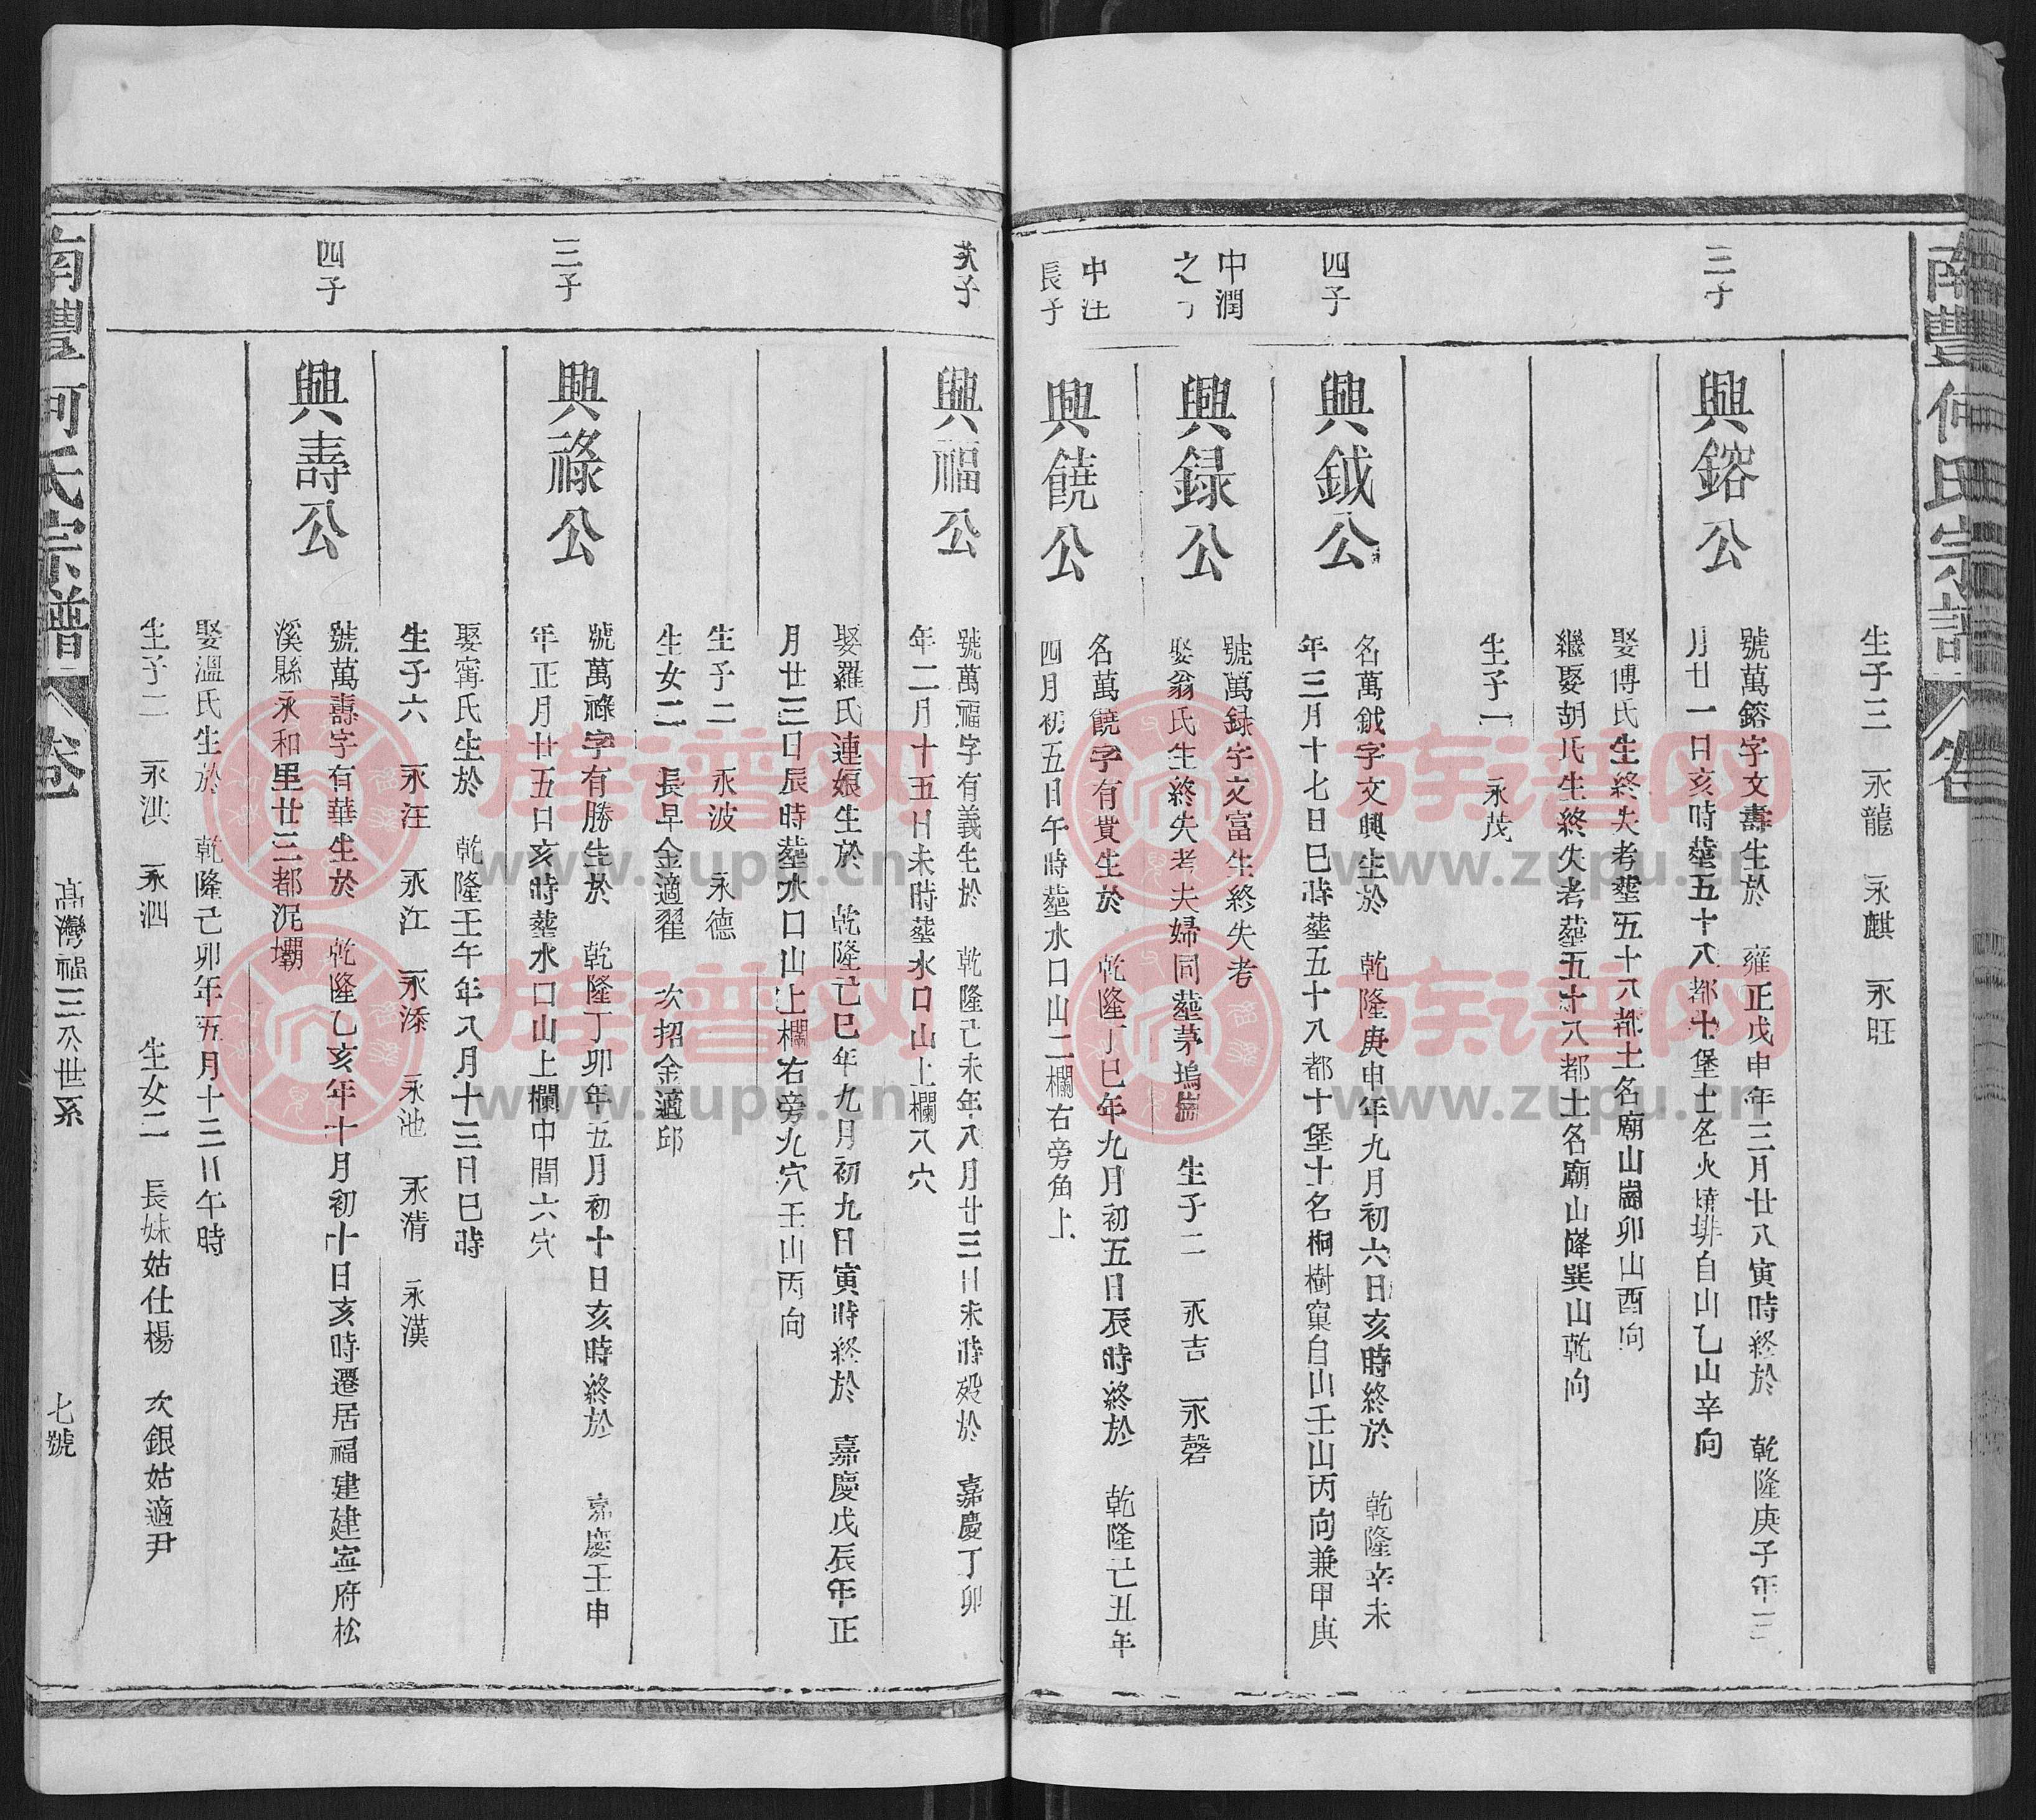 南豐何氏宗譜
生子三　永龍　永麒　永旺
三子
興鎔公
號萬鎔字文壽生於　雍正戊申年三月廿八寅時終於　乾隆庚子年三
月廿一日亥時塟五十八都十堡土名火墳排自山乙山辛向
娶傅氏生終失考塟五十八都土名廟山崗卯山酉向
繼娶胡氏生終失考塟五十八都土名廟山峰巽山乾向
生子一　永茂
四子
興鉞公
名萬鉞字文興生於　乾隆庚申年九月初六日亥時終於　乾隆辛未
年三月十七日巳時塟五十八都十堡土名桐樹窠自山壬山丙向兼甲庚
中潤
之子
興録公
號萬録字文富生終失考
娶翁氏生終失考夫婦同塟茅塢崗　生子二　永吉　永磬
中汪
長子
興饒公
名萬饒字有貴生於　乾隆丁巳年九月初五日辰時終於　乾隆己丑年
四月初五日午時塟水口山二欄右旁角上
次子
興福公
號萬福字有義生於　乾隆己未年八月廿三日未時歿於　嘉慶丁卯
年二月十五日未時塟水口山上欄八穴
娶羅氏連娘生於　乾隆己巳年九月初九日寅時終於　嘉慶戊辰年正
月廿三日辰時塟水口山上欄右旁九穴壬山丙向
生子二　永波　永德
生女二　長早金適翟　次招金適邱
三子
興祿公
號萬祿字有勝生於　乾隆丁卯年五月初十日亥時終於　嘉慶壬申
年正月廿五日亥時塟水口山上欄中間六穴
娶甯氏生於　乾隆壬午年八月十三日巳時
生子六　永汪　永江　永添　永池　永清　永漢
四子
興壽公
號萬壽字有華生於　乾隆乙亥年十月初十日亥時遷居福建建寧府松
溪縣永和里廿三都泥壩
娶溫氏生於　乾隆己卯年五月十三日午時
生子二　永洪　永泗　生女二　長妹姑仕楊　次銀姑適尹
南豐何氏宗譜
卷一
高灣福三公世系
七號
族谱网
www.zupu.cn
族谱网
www.zupu.cn
族谱网
www.zupu.cn
族谱网
www.zupu.cn